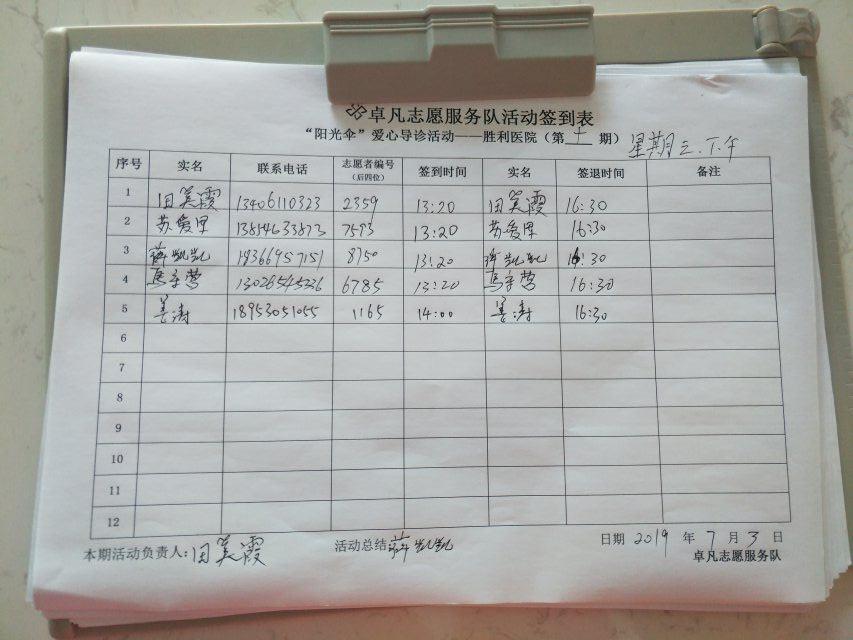 卓凡志愿服务队活动签到表
“阳光伞”爱心导诊活动——胜利医院（第十期） 星期三.下午
序号 实名 联系电话 志愿者编号（后四位） 签到时间 实名 签退时间 备注
1 田美霞 13406110323 2359 13:20 田美霞 16:30
2 苏爱军 7593 13:20 苏爱军 16:30
3 蒋凯凯 18366957151 8750 13:20 蒋凯凯 16:30
4 马辛营 6785 13:20 马辛营 16:30
5 姜涛 18953051055 1165 14:00 姜涛 16:30
6
7
8
9
10
11
12
本期活动负责人:田美霞 活动总结 蒋凯凯 日期 2019 年 7 月 3 日
卓凡志愿服务队